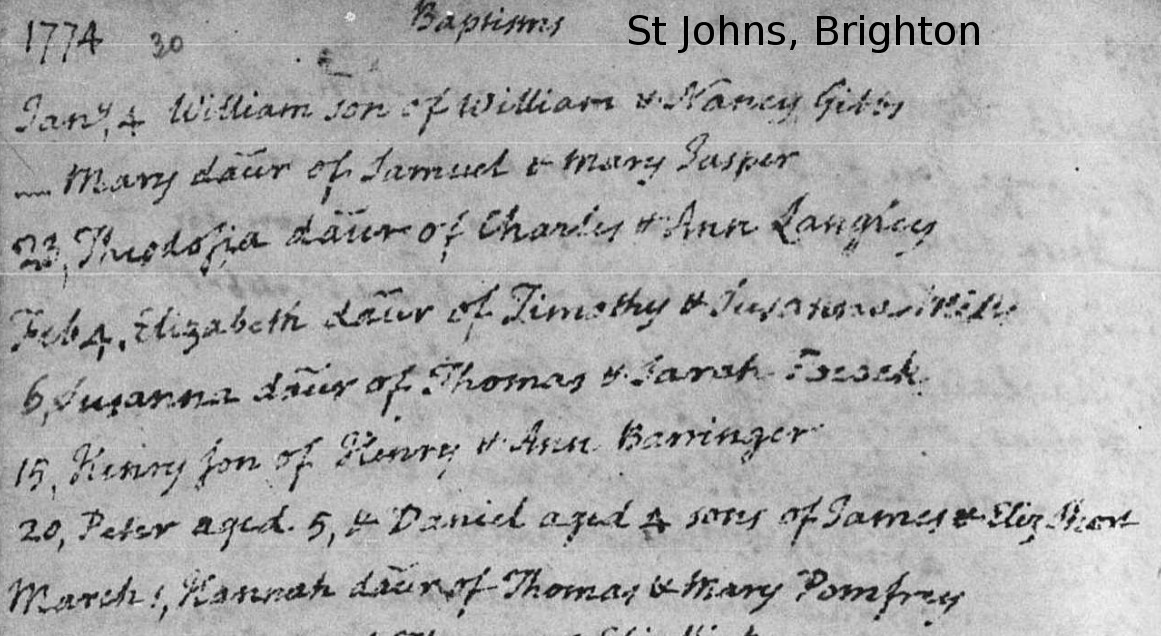 1774 30 Baptisms St Johns, Brighton
Jany, 4 William son of William & Nancy Gibbs
— Mary daūr of Samuel & Mary Jasper
23, Theodosia daūr of Charles & Ann Langley
Feb 4, Elizabeth daūr of Timothy & Susanna
6, Susanna daūr of Thomas & Sarah
15, Henry son of Henry & Ann Barringer
20, Peter aged 5, & Daniel aged 4 sons of James & Eliz Short
March 1, Hannah daūr of Thomas & Mary Pomfrey